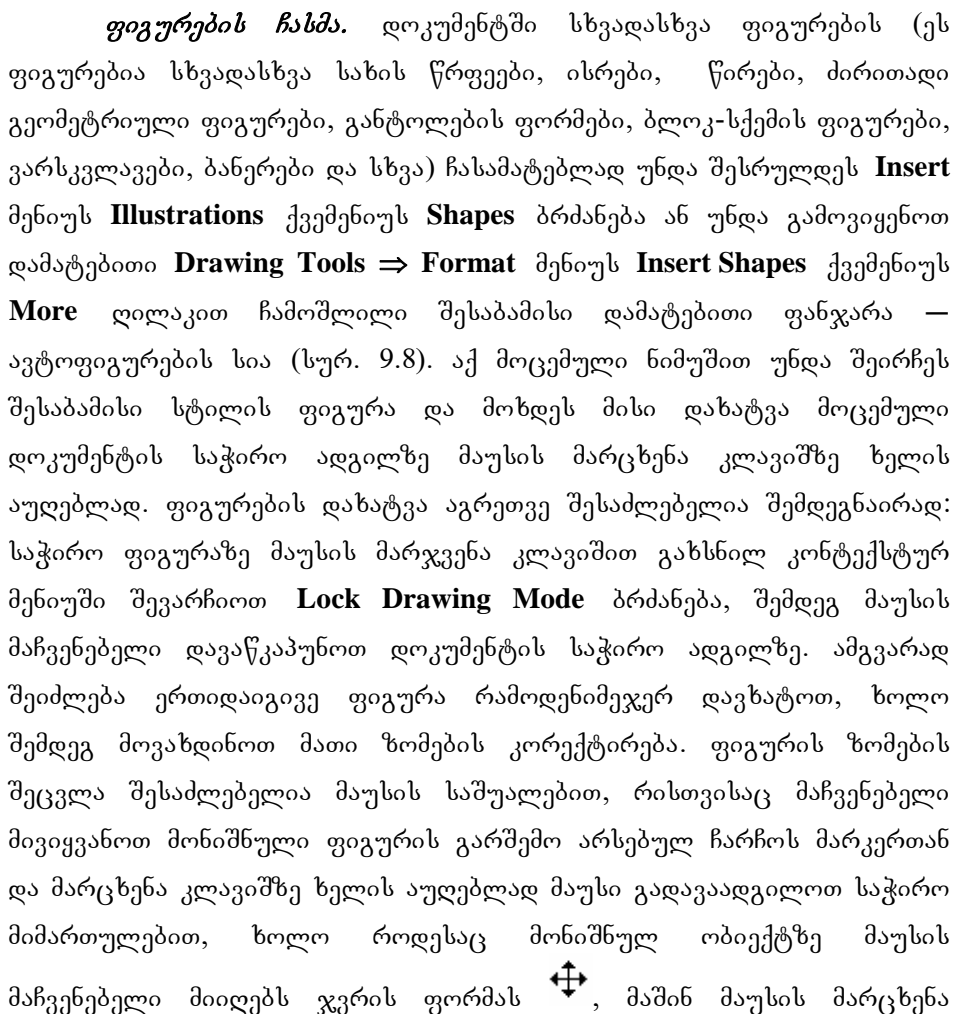 ფიგურების ჩასმა. დოკუმენტში სხვადასხვა ფიგურების (ეს
ფიგურებია სხვადასხვა სახის წრფეები, ისრები, წირები, ძირითადი
გეომეტრიული ფიგურები, განტოლების ფორმები, ბლოკ-სქემის ფიგურები,
ვარსკვლავები, ბანერები და სხვა) ჩასამატებლად უნდა შესრულდეს Insert
მენიუს Illustrations ქვემენიუს Shapes ბრძანება ან უნდა გამოვიყენოთ
დამატებითი Drawing Tools ⇒ Format მენიუს Insert Shapes ქვემენიუს
More ღილაკით ჩამოშლილი შესაბამისი დამატებითი ფანჯარა —
ავტოფიგურების სია (სურ. 9.8). აქ მოცემული ნიმუშით უნდა შეირჩეს
შესაბამისი სტილის ფიგურა და მოხდეს მისი დახატვა მოცემული
დოკუმენტის საჭირო ადგილზე მაუსის მარცხენა კლავიშზე ხელის
აუღებლად. ფიგურების დახატვა აგრეთვე შესაძლებელია შემდეგნაირად:
საჭირო ფიგურაზე მაუსის მარჯვენა კლავიშით გახსნილ კონტექსტურ
მენიუში შევარჩიოთ Lock Drawing Mode ბრძანება, შემდეგ მაუსის
მაჩვენებელი დავაწკაპუნოთ დოკუმენტის საჭირო ადგილზე. ამგვარად
შეიძლება ერთიდაიგივე ფიგურა რამოდენიმეჯერ დავხატოთ, ხოლო
შემდეგ მოვახდინოთ მათი ზომების კორექტირება. ფიგურის ზომების
შეცვლა შესაძლებელია მაუსის საშუალებით, რისთვისაც მაჩვენებელი
მივიყვანოთ მონიშნული ფიგურის გარშემო არსებულ ჩარჩოს მარკერთან
და მარცხენა კლავიშზე ხელის აუღებლად მაუსი გადავაადგილოთ საჭირო
მიმართულებით, ხოლო როდესაც მონიშნულ ობიექტზე მაუსის
მაჩვენებელი მიიღებს ჯვრის ფორმას , მაშინ მაუსის მარცხენა